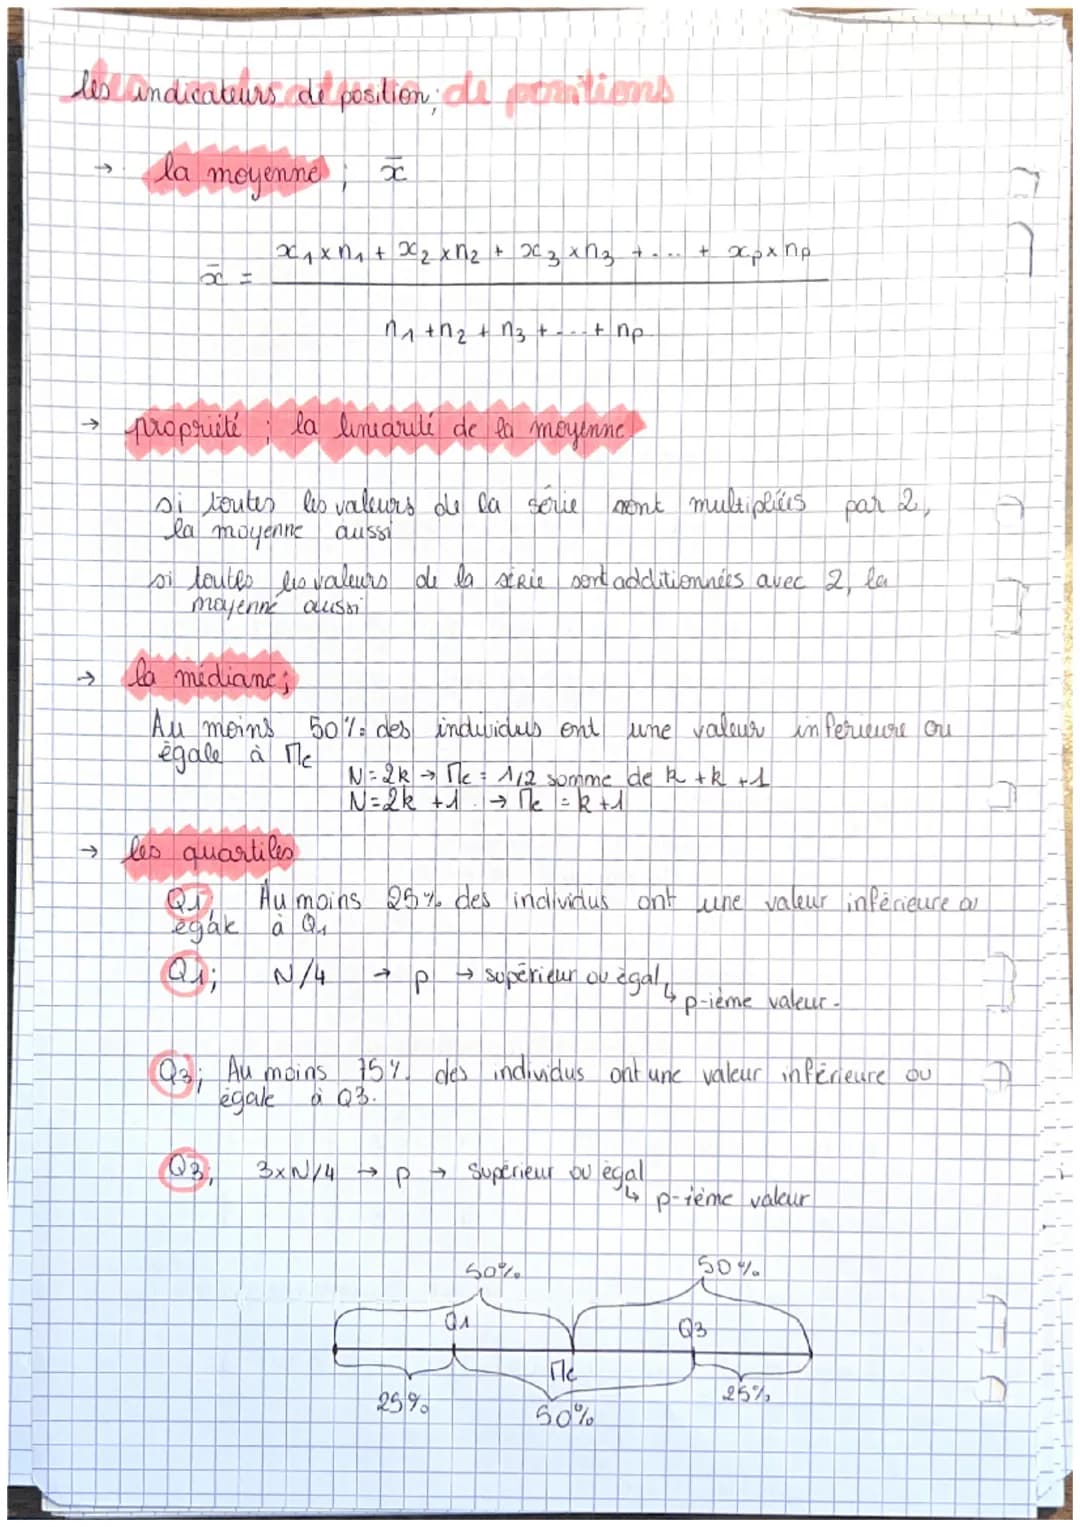 les indicateurs de position; de positions
→ la moyenne ; x̄
x̄ = x₁ x n₁ + x₂ x n₂ + x₃ x n₃ + ... + xp x np
n₁ + n₂ + n₃ + ... + np
→ propriété ; la linéarité de la moyenne
si toutes les valeurs de la série sont multipliées par 2,
la moyenne aussi
si toutes les valeurs de la série sont additionnées avec 2, la
moyenne aussi
→ la médiane ;
Au moins 50% des individus ont une valeur inférieure ou
égale à Me
N = 2k → Me = 1/2 somme de k + k + 1
N = 2k + 1 → Me = k + 1
→ les quartiles
Q1; Au moins 25% des individus ont une valeur inférieure ou
égale à Q₁
Q1; N/4 → p → supérieur ou égal
↳ p-ième valeur.
Q3; Au moins 75% des individus ont une valeur inférieure ou
égale à Q3.
Q3; 3xN/4 → p → supérieur ou égal
↳ p-ième valeur
50% 50%
Q1 Q3
Me
25% 50% 25%